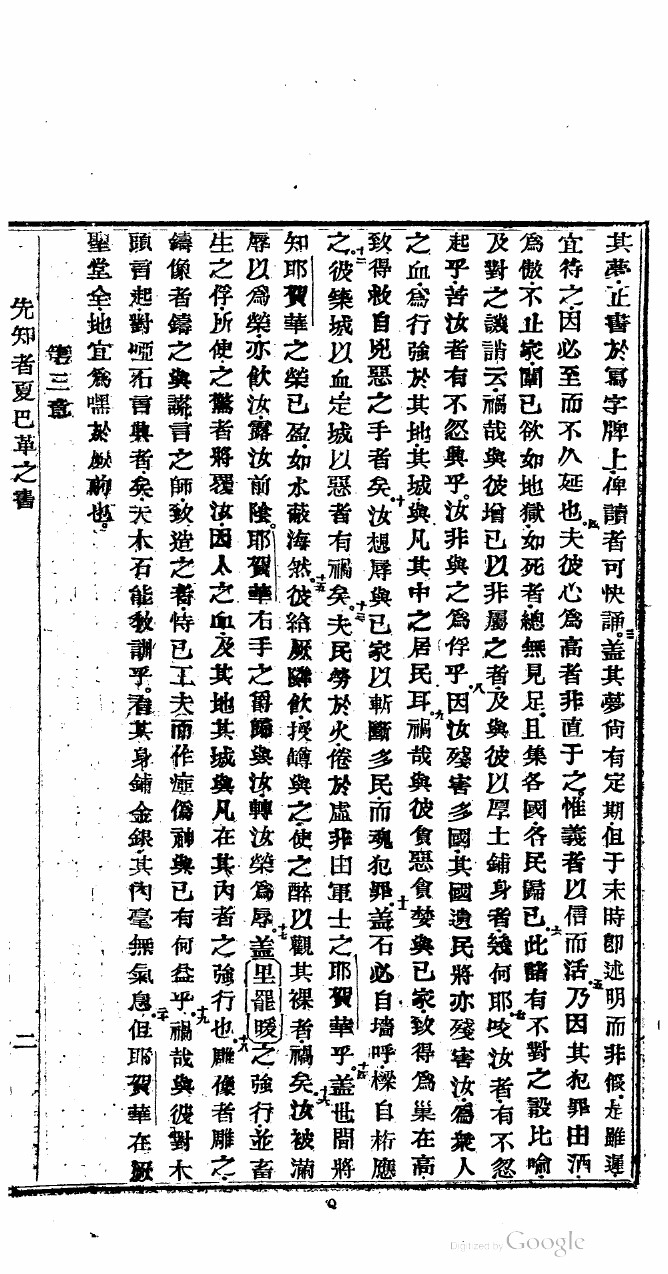 其夢止書於寫字牌上俾讀者可快誦。三蓋其夢尙有定期但于末時卽述明而非假是雖遲
宜待之因必至而不久延也。四夫彼心爲高者非直于之惟義者以信而活五乃因其犯罪由酒
爲傲不止家闈已欲如地獄如死者總無見足且集各國各民歸已六此諸有不對之設比喻
及對之譏誚云禍哉與彼增已以非屬之者及與彼以厚土鋪身者幾何耶七咬汝者有不忽
起乎苦汝者有不忽興乎汝非與之爲俘乎八因汝殘害多國其國遺民將亦殘害汝爲衆人
之血爲行強於其地其城與凡其中之居民耳九禍哉與彼貪惡貪婪與已家致得爲巢在高
致得救自兇惡之手者矣十汝想辱與已家以斬斷多民而魂犯罪十一蓋石必自墻呼樑自桁應
之。十二彼築城以血定城以惡者有禍矣十三夫民勞於火倦於虛非由軍士之耶賀華乎十四蓋世間將
知耶賀華之榮已盈如水蔽海然十五彼給厥隣飲授罇與之使之醉以觀其裸者禍矣十六汝被滿
辱以爲榮亦飲汝露汝前陰耶賀華右手之爵歸與汝轉汝榮爲辱十七蓋里罷暖之強行並畜
生之俘所使之驚者將覆汝因人之血及其地其城與凡在其內者之強行也。十八雕像者雕之
鑄像者鑄之與謊言之師致造之者恃已工夫而作瘂僞神與已有何益乎十九禍哉與彼對木
頭言起對啞石言興者矣夫木石能敎訓乎看其身鋪金銀其內毫無氣息二十但耶賀華在厥
聖堂全地宜爲嘿於厥前也。
第三章
先知者夏巴革之書
二
Digitized by Google